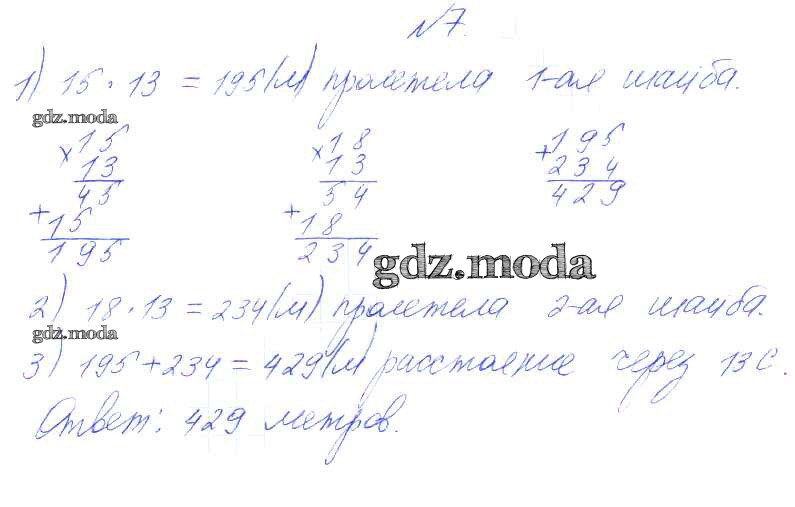 №7.
1) 15 · 13 = 195 (м) пролетела 1-ая шайба.
gdz.moda
× 15 × 18 + 195
13 13 234
45 54 429
+ 15 + 18
195 234
gdz.moda
2) 18 · 13 = 234 (м) пролетела 2-ая шайба.
gdz.moda
3) 195 + 234 = 429 (м) расстояние через 13 с.
Ответ: 429 метров.